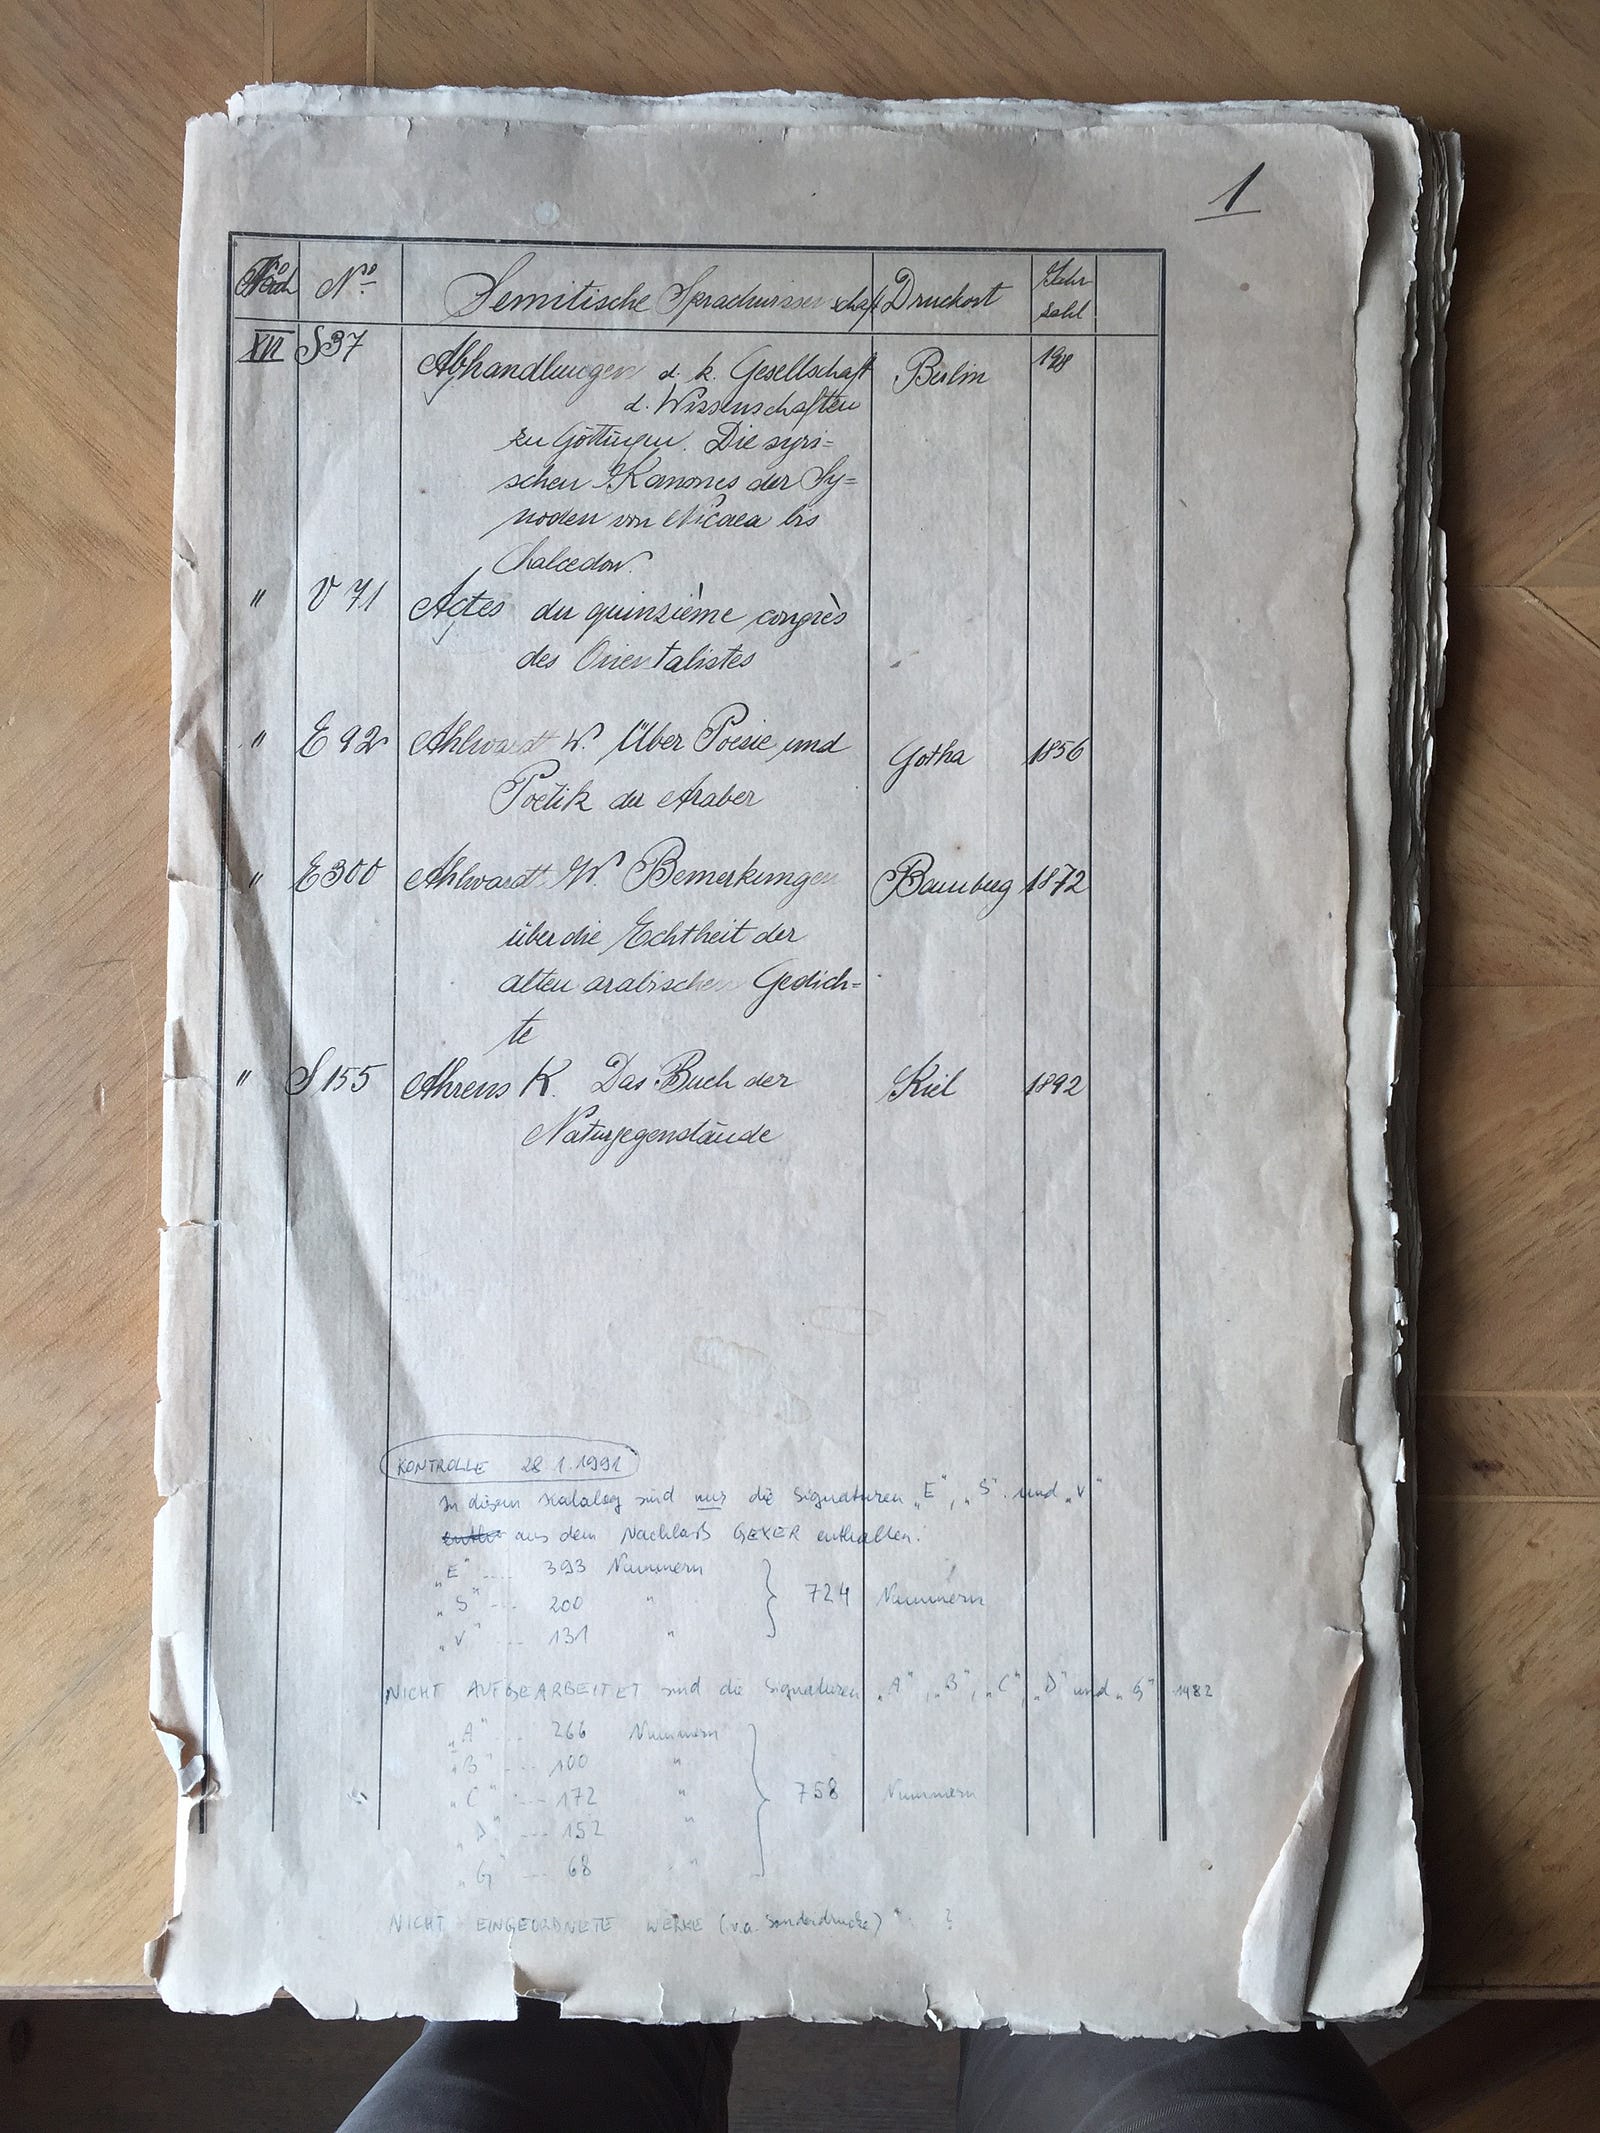 1
Fach No. Semitische Sprachwissenschaft Druckort Jahrzahl
XVI S37 Abhandlungen d. k. Gesellschaft Berlin
d. Wissenschaften
zu Göttingen. Die syri=
schen Kanones der Sy=
noden von Nicaea bis
Chalcedon.
" V 71 Actes du quinzième congrès
des Orientalistes
" E 92 Ahlwardt W. Über Poesie und Gotha 1856
Poetik der Araber
" E300 Ahlwardt W. Bemerkungen Bamberg 1872
über die Echtheit der
alten arabischen Gedich=
te
" S 155 Ahrens K. Das Buch der Kiel 1892
Naturgegenstände
KONTROLLE 28.1.1991
In diesem Katalog sind nur die Signaturen „E", „S" und „V"
aus dem Nachlaß GEYER enthalten:
„E" .... 393 Nummern
„S" ... 200 " } 724 Nummern
„V" ... 131 "
NICHT AUFGEARBEITET sind die Signaturen „A", „B", „C", „D" und „G" 1482
„A" ... 266 Nummern
„B" .... 100 "
„C" .... 172 " } 758 Nummern
„D" .... 152 "
„G" .... 68 "
NICHT EINGEORDNETE WERKE (v.a. Sonderdrucke) : ?